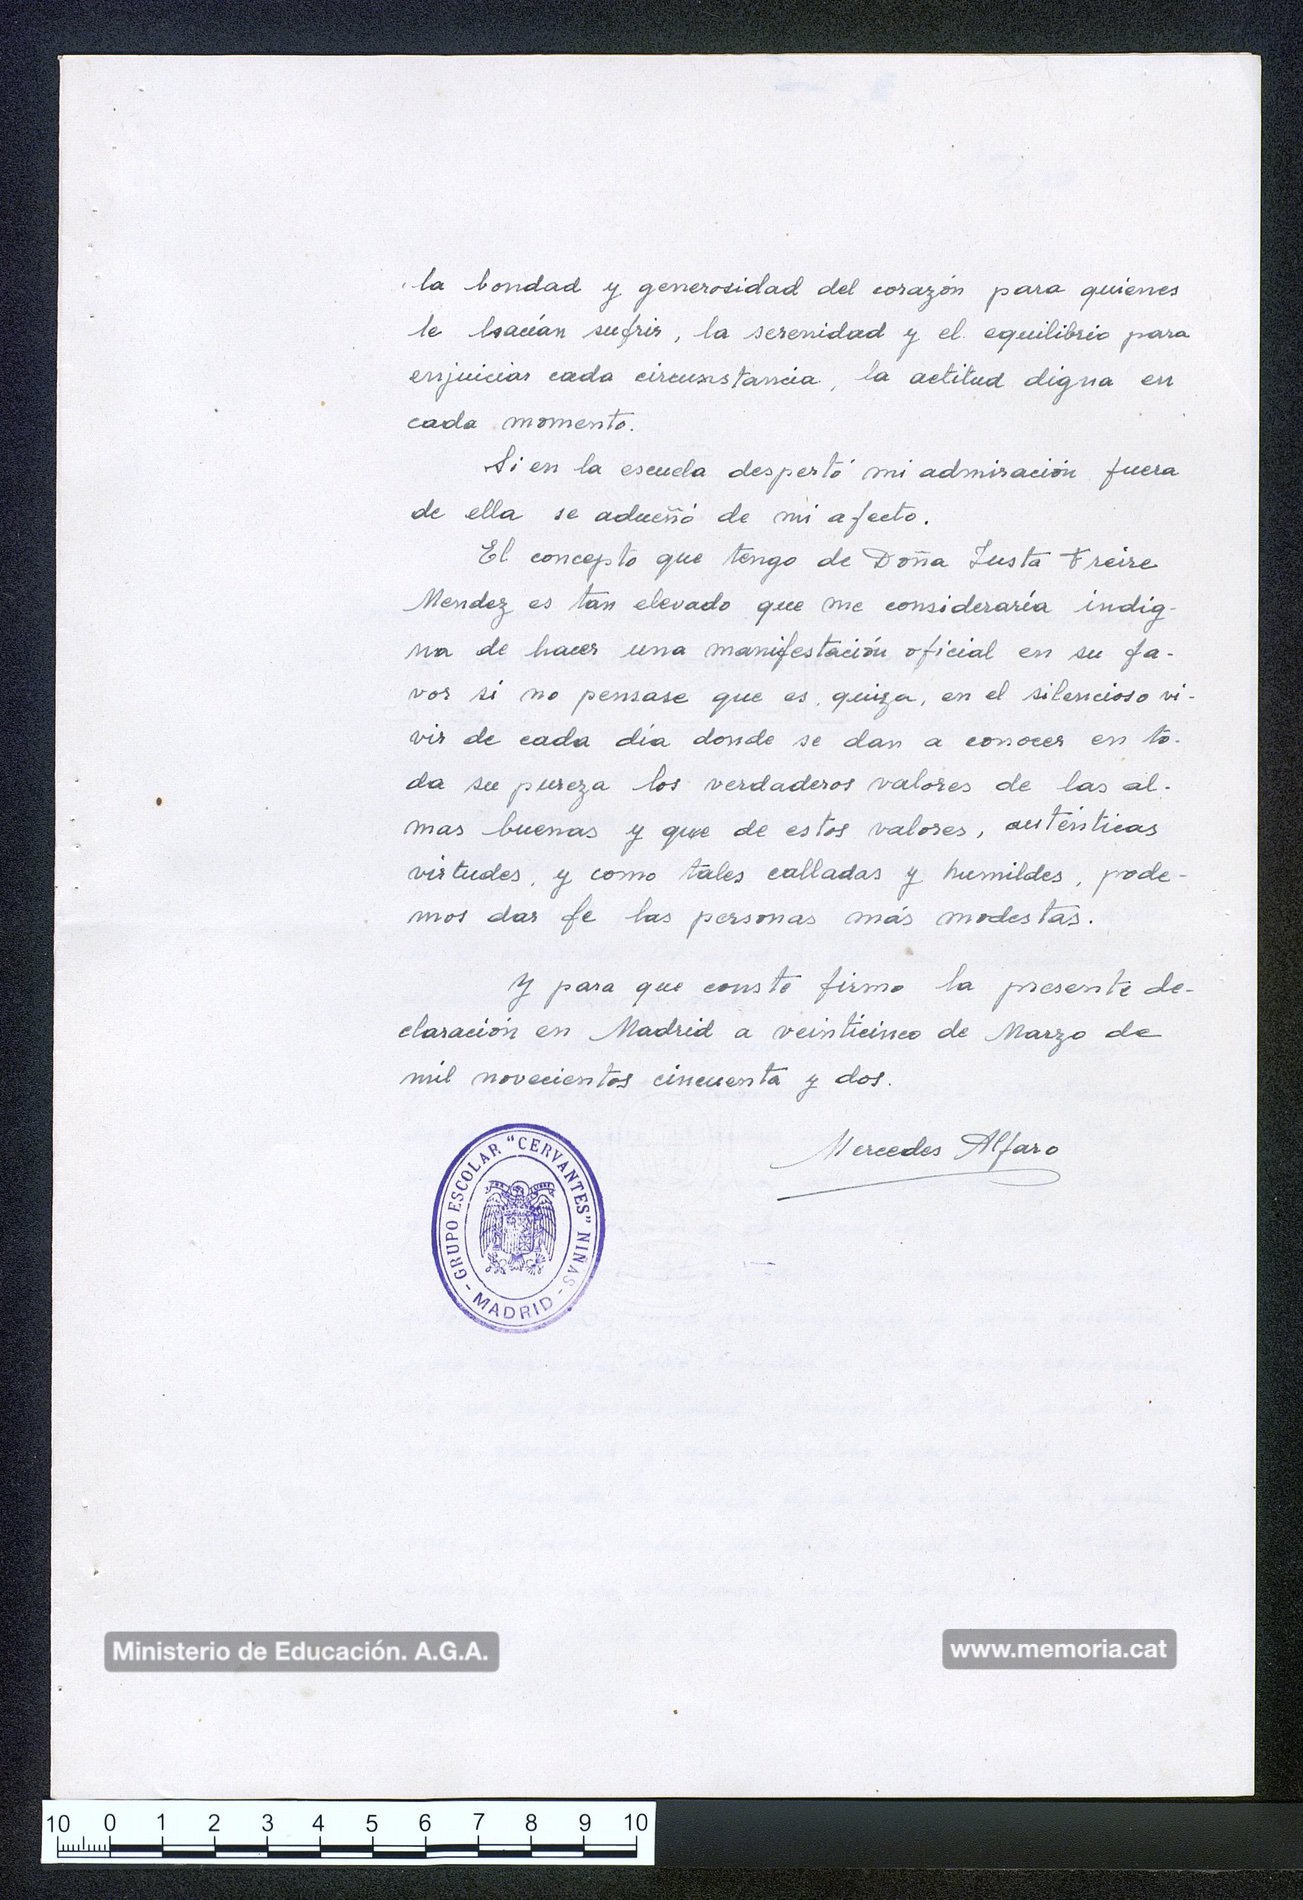 la bondad y generosidad del corazón para quienes
le hacían sufrir, la serenidad y el equilibrio para
enjuiciar cada circunstancia, la actitud digna en
cada momento.
Si en la escuela despertó mi admiración fuera
de ella se adueñó de mi afecto.
El concepto que tengo de Doña Justa Freire
Mendez es tan elevado que me consideraría indig-
na de hacer una manifestación oficial en su fa-
vor si no pensase que es, quiza, en el silencioso vi-
vir de cada día donde se dan a conocer en to-
da su pureza los verdaderos valores de las al-
mas buenas y que de estos valores, auténticas
virtudes, y como tales calladas y humildes, pode-
mos dar fe las personas más modestas.
Y para que conste firmo la presente de-
claración en Madrid a veinticinco de Marzo de
mil novecientos cincuenta y dos.
Mercedes Alfaro
GRUPO ESCOLAR "CERVANTES" NIÑAS
- MADRID -
Ministerio de Educación. A.G.A.
www.memoria.cat
10 0 1 2 3 4 5 6 7 8 9 10